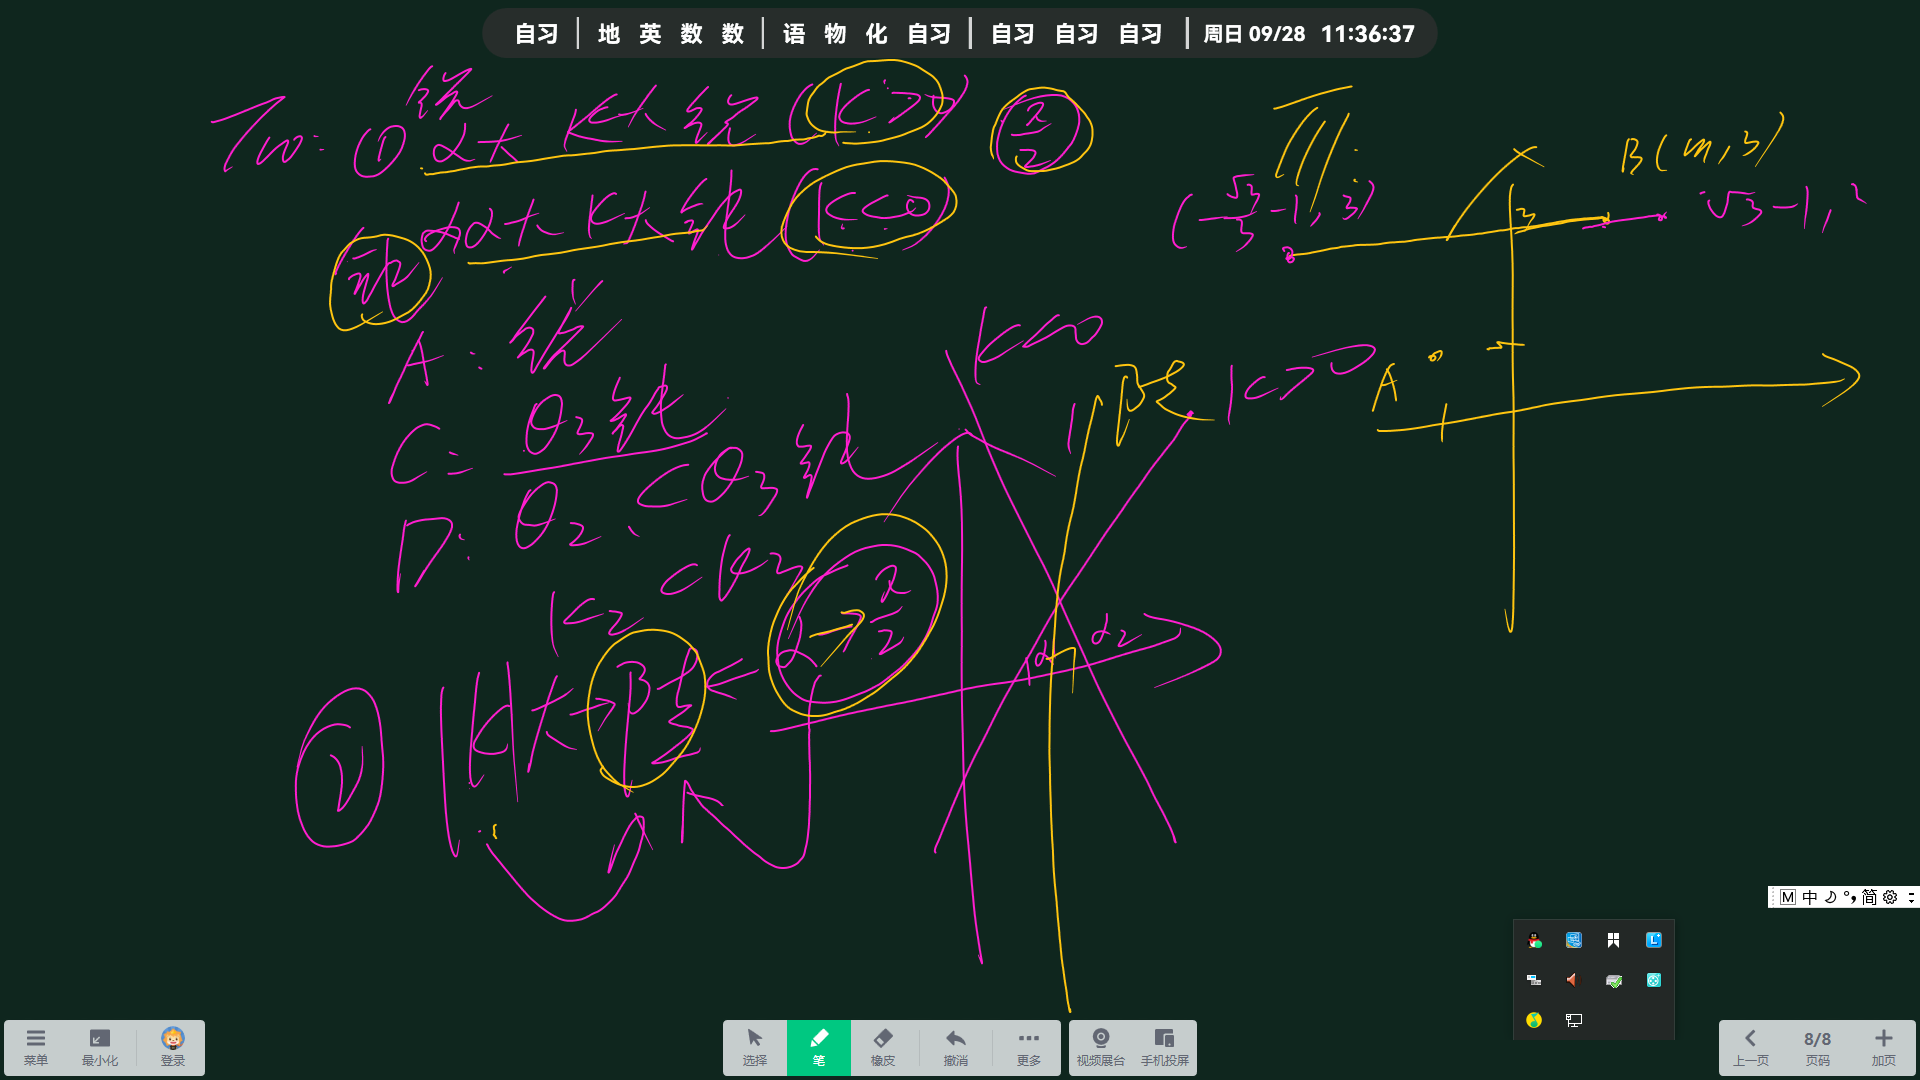 自习 | 地 英 数 数 | 语 物 化 自习 | 自习 自习 自习 | 周日 09/28 11:36:37
锐
Two: ① α大 K大 锐 (K>0) π/2
α大 K大 钝 (K<0)
A: 锐
C: θ3 钝
D: θ2、<θ3 钝
K2 <K3
② |K|大→陡 ← α→π/2
K<0
K>0
陡
α1 α2
B(m,3)
(-√3/3-1, 3)
√3-1,
3
A
M 中 简
菜单 最小化 登录
选择 笔 橡皮 撤消 更多
视频展台 手机投屏
上一页 8/8 页码 加页